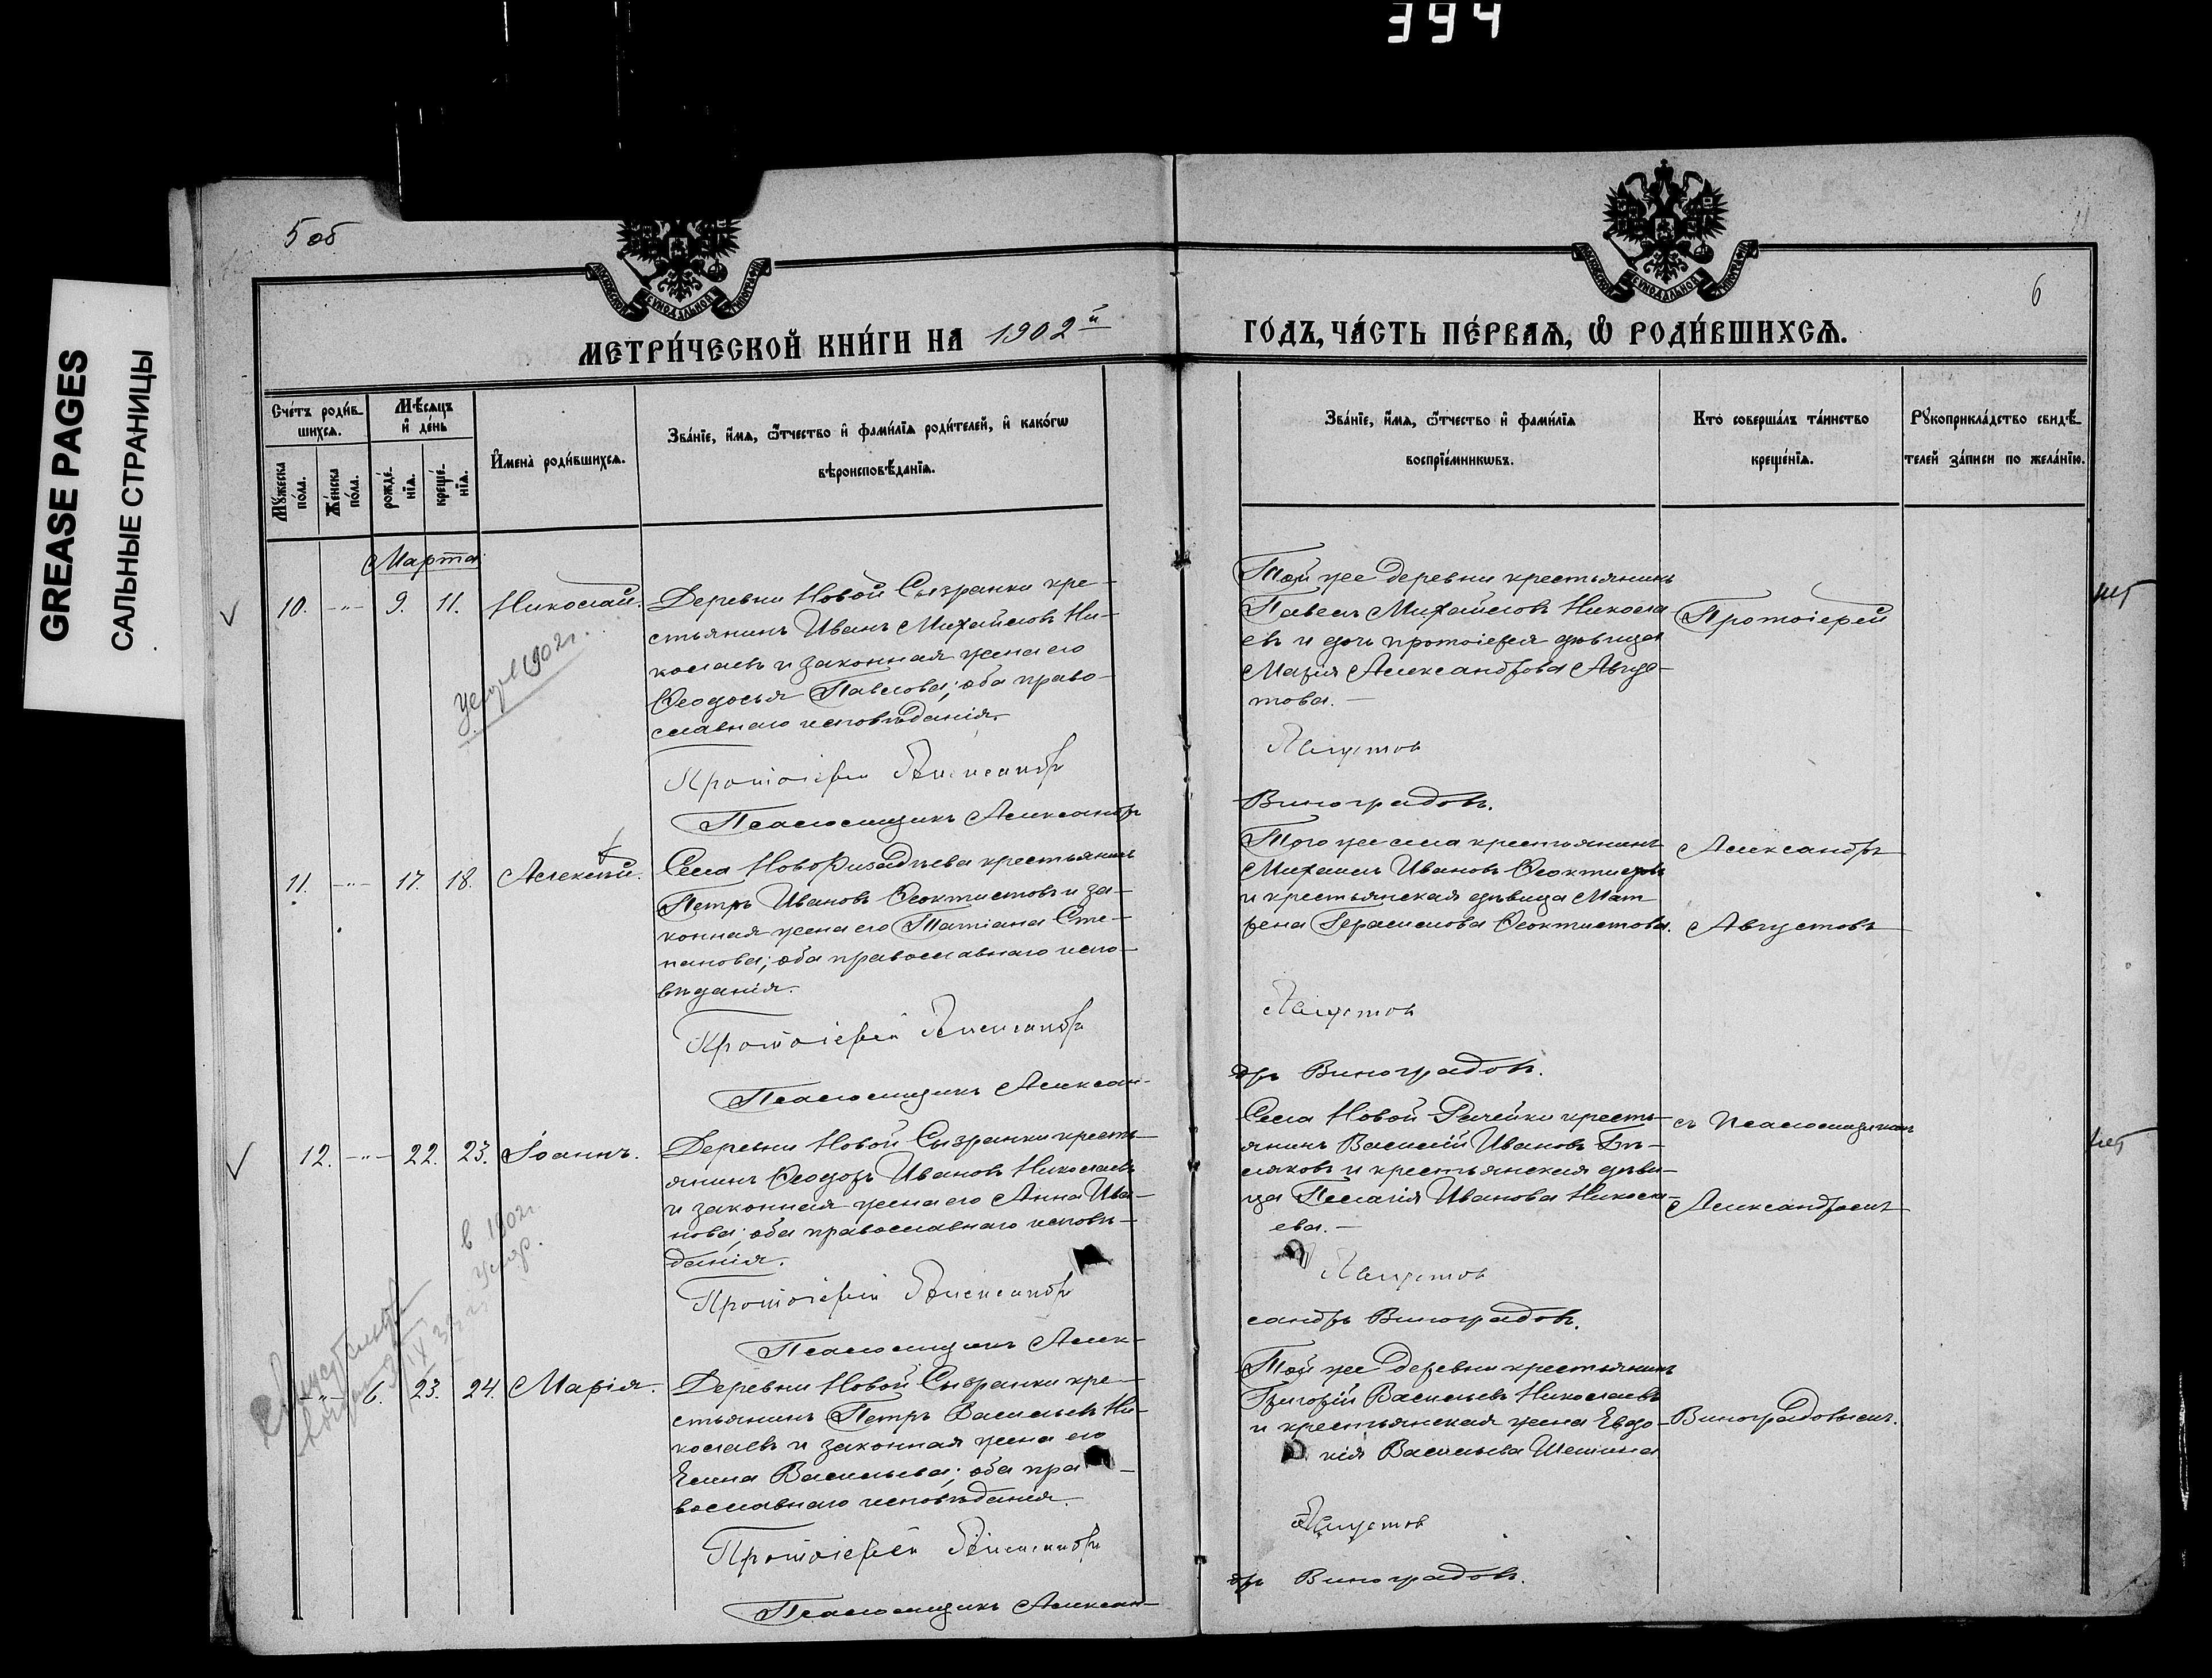 394
GREASE PAGES
САЛЬНЫЕ СТРАНИЦЫ
5 об
6
МЕТРИ́ЧЕСКОЙ КНИ́ГИ НА 1902й
ГО́ДЪ, ЧА́СТЬ ПЕ́РВАѦ, Ѿ РОДИ́ВШИХСѦ.
Сче́тъ роди́в-
шихсѧ.
Мѣ́сѧцъ
и҆ де́нь
Мꙋ́жеска
по́ла.
Же́нска
по́ла.
рожде́-
нїѧ.
креще́-
нїѧ.
И҆мена̀ роди́вшихсѧ.
Зва́нїе, и҆́мѧ, ѻ҆́тчество и҆ фами́лїѧ роди́телей, и҆ како́гѡ
вѣроисповѣ́данїѧ.
Зва́нїе, и҆́мѧ, ѻ҆́тчество и҆ фами́лїѧ
воспрїе́мникѡвъ.
Кто̀ соверша́лъ та́инство
креще́нїѧ.
Рꙋкоприкла́дство свидѣ́-
телей за́писи по жела́нїю.
Марта
10. -"- 9. 11. Николай.
Деревни Новой Сызранки кре-
стьянинъ Иванъ Михайловъ Ни-
колаевъ и законная жена его
Ѳеодосья Павлова; оба право-
славнаго исповѣданія.
Протоіерей Александр
Псаломщикъ Александръ
Той же деревни крестьянинъ
Павелъ Михайловъ Никола
евъ и дочь протоіерея дѣвица
Марія Александрова Авгус-
това.
Августов
Виноградовъ.
Протоіерей
нет
1902 г.
11. -"- 17. 18. Алексѣй.
Села Новоризадѣева крестьянинъ
Петръ Ивановъ Ѳеоктистовъ и за-
конная жена его Татіана Сте-
панова; оба православнаго испо-
вѣданія.
Протоіерей Александр
Псаломщикъ Алексан-
Того же села крестьянинъ
Михаилъ Ивановъ Ѳеоктистовъ
и крестьянская дѣвица Мат
рена Герасимова Ѳеоктистова.
Августов
дръ Виноградовъ.
Александръ
Августовъ
12. -"- 22. 23. Іоаннъ.
Деревни Новой Сызранки кресть-
янинъ Ѳеодоръ Ивановъ Николаевъ
и законная жена его Анна Ива-
нова; оба православнаго исповѣ-
данія.
Протоіерей Александр
Псаломщикъ Алек-
Села Новой Рачейки кресть-
янинъ Василій Ивановъ Бѣ-
ляковъ и крестьянская дѣви-
ца Пелагія Иванова Никола-
ева.
Августов
сандръ Виноградовъ.
съ псаломщикомъ
Александромъ
нет
в 1902 г.
-"- 6. 23. 24. Марія.
Деревни Новой Сызранки кре-
стьянинъ Петръ Васильевъ Ни-
колаевъ и законная жена его
Елена Васильева; оба пра-
вославнаго исповѣданія.
Протоіерей Александр
Псаломщикъ Алексан-
Той же деревни крестьянинъ
Григорій Васильевъ Николаевъ
и крестьянская жена Евдо-
кія Васильева
Августов
дръ Виноградовъ.
Виноградовымъ.